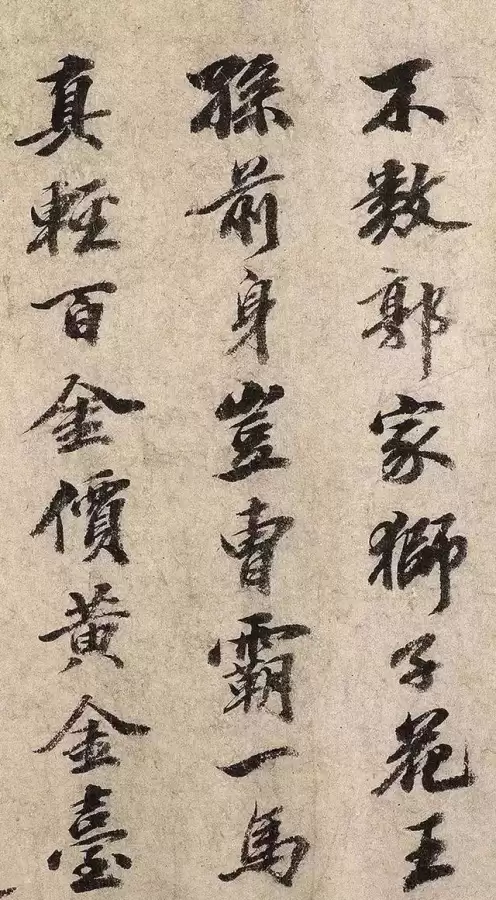 不數郭家獅子花王
孫前身豈曹霸一馬
真輕百金價黃金臺